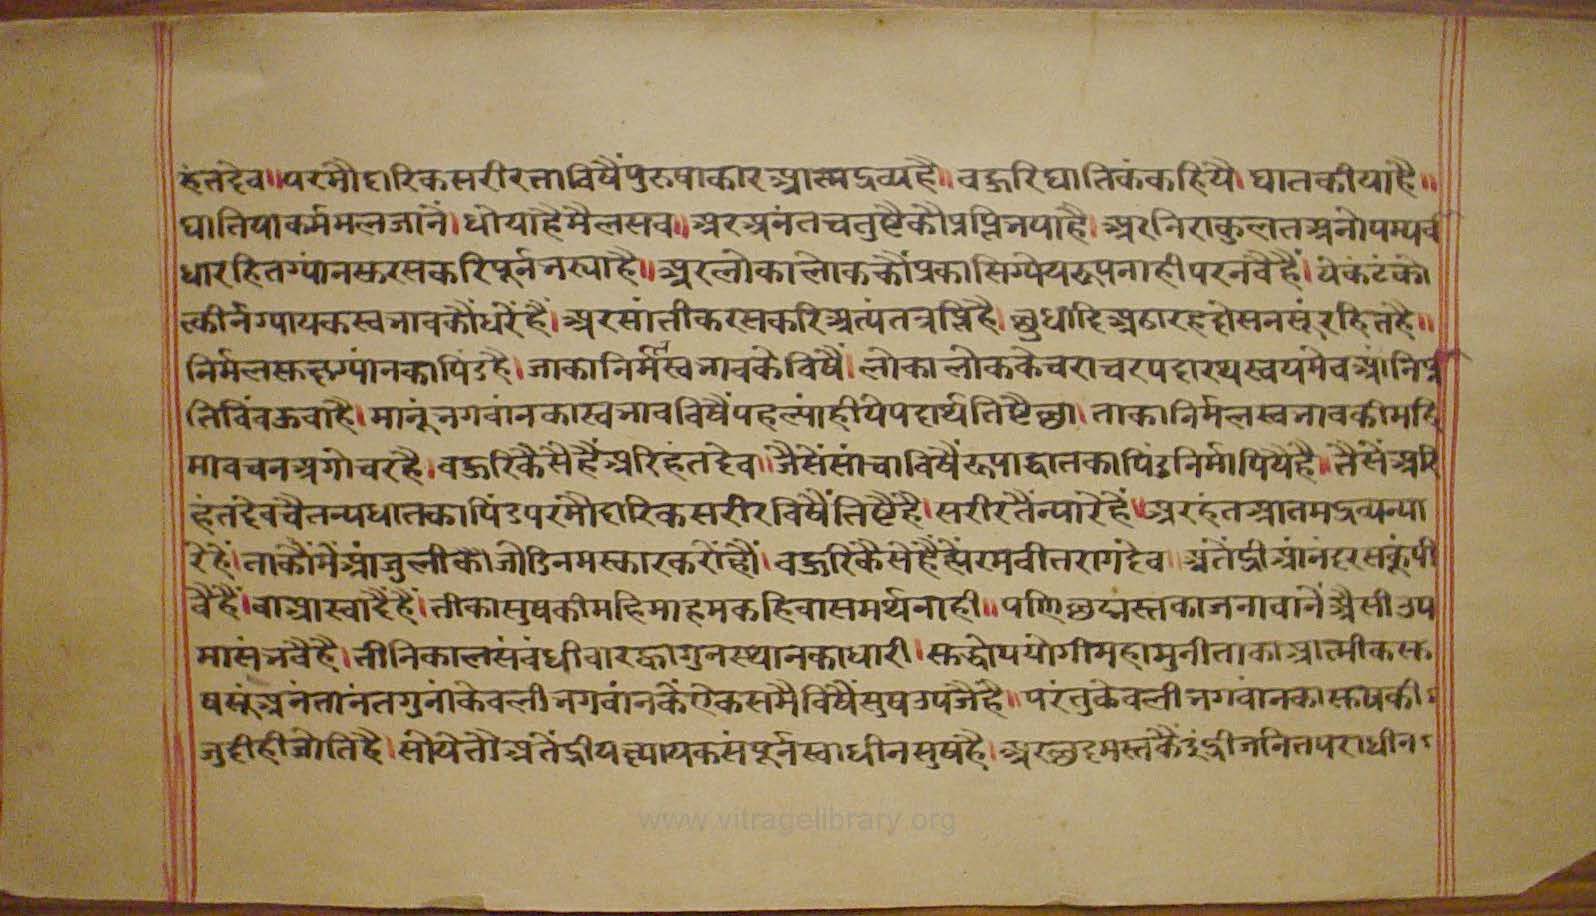 हंतदेव॥परमौदारिकसरीरताविषैंपुरुषाकारआत्मद्रव्यहै॥वहुरिघातिकंकहिंयै।घातकीयांहै॥
घातियाकर्ममलजांनें।धोयाहैमैलसव॥अरअनंतचतुष्टैकौप्राप्तिभयाहै।अरनिराकुलतअनोपम्यव
धारहितग्यांनसुरसकरिपूर्नभर्‍याहै॥अरलोकालोककौंप्रकासिग्येयरूपनाहीपरनवैहैं।येकंटंको
त्कीर्नग्यायकस्वभावकौंधरेंहैं।अरसांतीकरसकरिअत्यंतत्रप्तिहै।छुधादिअठारहदोसनसूंरहितहै॥
निर्मलसुछग्यांनकापिंडहै।जाकानिर्मलस्वभावकेविषैं।लोकालोककेचराचरपदारथस्वयमेवआंनिप्र
तिविंवऊवाहै।मानूंभगवांनकास्वभावविषैंपहल्यांहीयेपदार्थतिष्टैछा।ताकानिर्मलस्वभावकीमहि
मावचनअगोचरहै।वहुरिकैसेहैंअरिहंतदेव॥जैसेंसांचाविषैंरूपाद्धातकापिंडनिर्मापियैहै।तैसेंअरि
हंतदेवचैतन्यधातकापिंडपरंमौदारिकसरीरविषैंतिष्टैंहै।सरीरतैंन्यारेहें॥अरहंतआतमद्रव्यन्या
रेहें।ताकौंमेंआंजुलीकौजोडिनमस्कारकरोंहौं।वहुरिंकैसेहैंपरमवीतरागदेव॥अंतेंद्रीआंनंदरसकूंपी
वैंहैं।वाआस्वादैंहैं।तीकासुषकीमहिमाहमकहिवासमर्थनाही॥पणिछदमस्तकाजनावानेंअैसीउप
मासंभवैहै।तीनिकालसंवंधीवारह्वागुनस्थानकाधारी।सुद्धोपयोगीमहामुनीताकाआत्मीकसु
षसूंअनंतानंतगुनांकेवलीभगवांनकेंऐकसमैविषैंसुषउपजैहै॥परंतुकेवलीभगवांनकासुषकी
जुदीहीजातिहै।सोयेतौअतेंद्रीयष्यायकसंपूर्नस्वाधीनसुषहै।अरछदमस्तकैइंद्रीजनितपराधीन
www.vitragelibrary.org